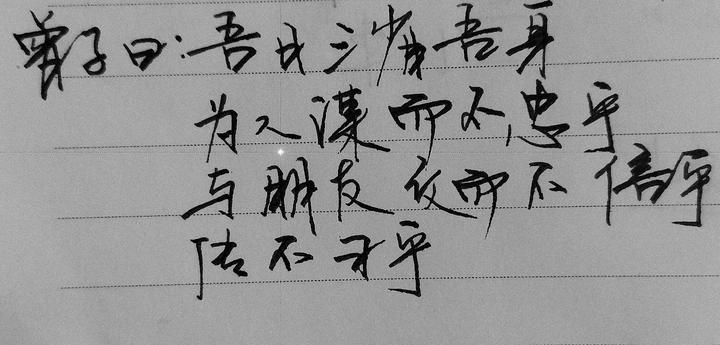 曾子曰:吾日三省吾身
为人谋而不忠乎
与朋友交而不信乎
传不习乎